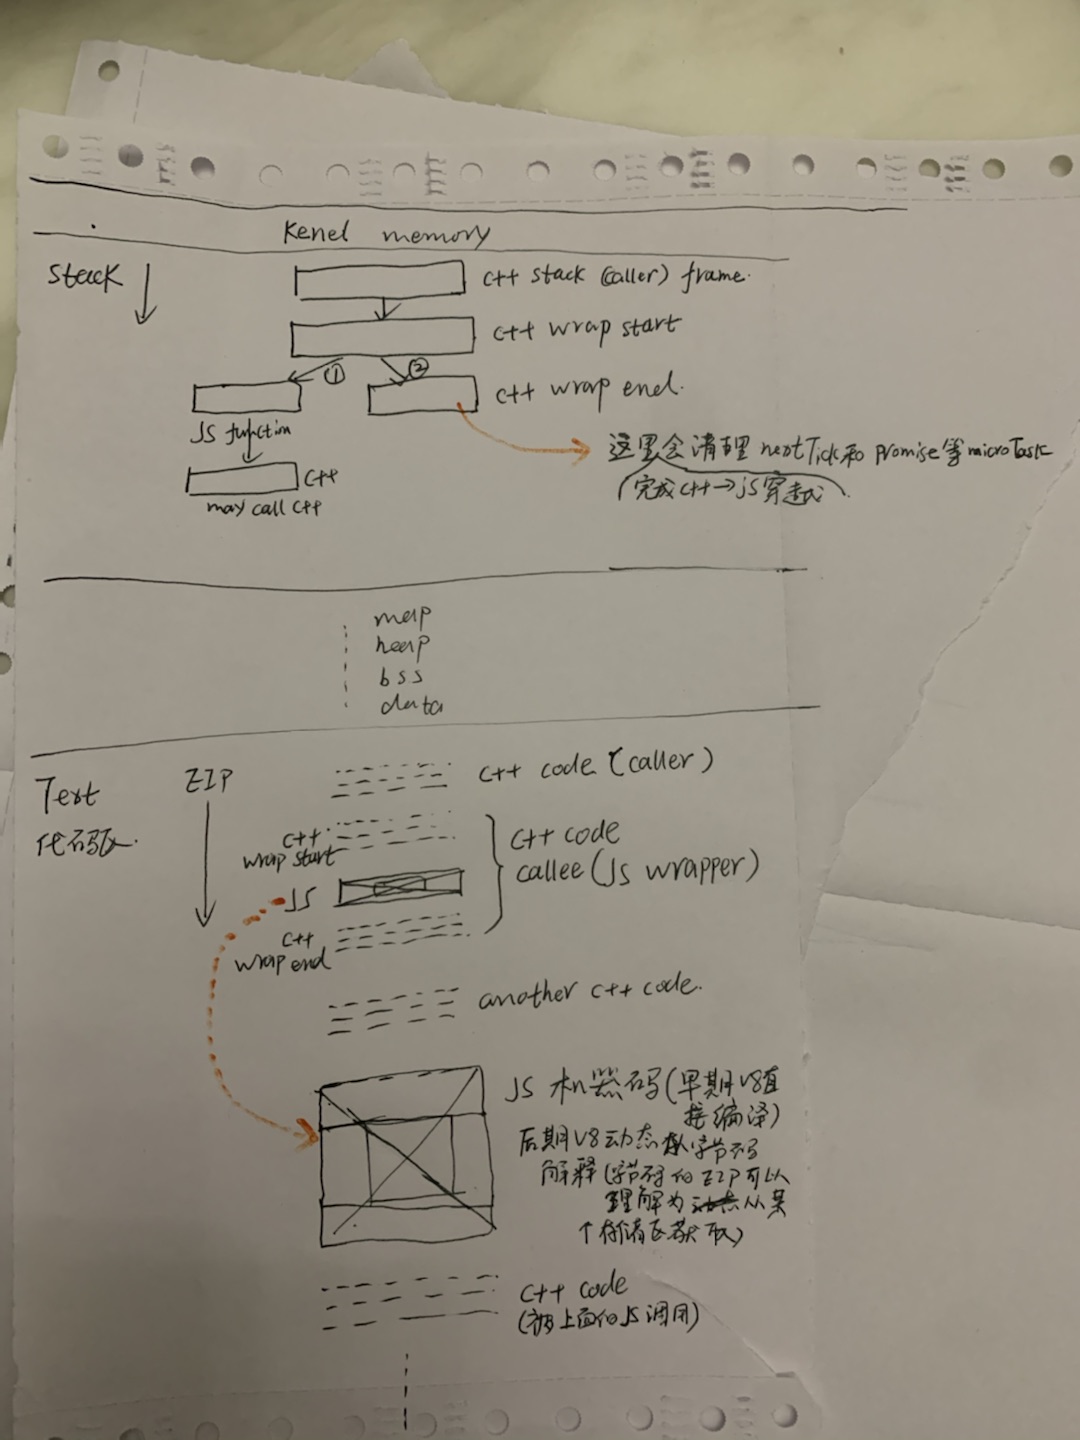 Kenel memory
Stack
C++ stack (caller) frame.
C++ wrap start
① ②
C++ wrap end.
JS function
C++
may call C++
这里会清理 nextTick和 promise等microTask
(完成C++→JS穿越)
map
heap
bss
data
Text
代码区.
EIP
C++ code (caller)
C++
wrap start
C++ code
callee (JS wrapper)
JS
C++
wrap end
another C++ code.
JS 机器码(早期V8直
接编译)
后期V8动态从字节码
解释(字节码的EIP可以
理解为从某
个存储区获取)
C++ code
(被上面的JS调用)